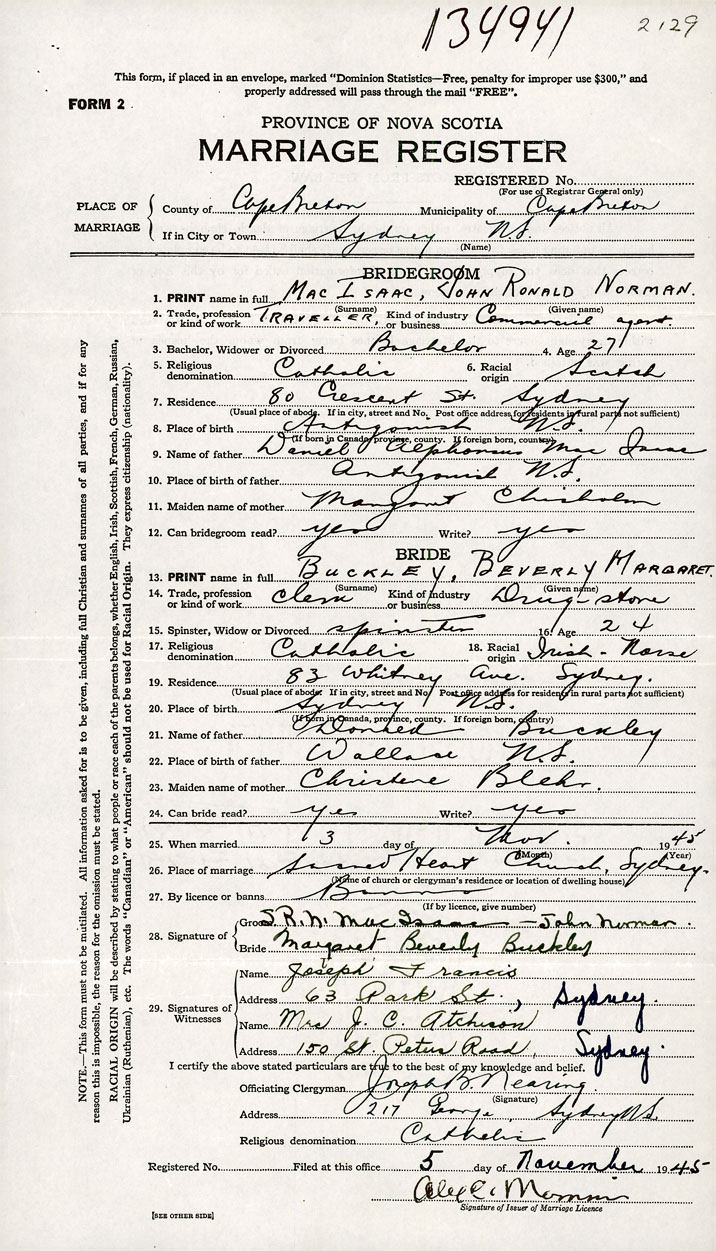 134941
2129
This form, if placed in an envelope, marked "Dominion Statistics—Free, penalty for improper use $300," and
properly addressed will pass through the mail "FREE".
FORM 2
PROVINCE OF NOVA SCOTIA
MARRIAGE REGISTER
REGISTERED No.
(For use of Registrar General only)
PLACE OF MARRIAGE
County of Cape Breton Municipality of Cape Breton
If in City or Town Sydney N.S.
(Name)
BRIDEGROOM
1. PRINT name in full MAC ISAAC, JOHN RONALD NORMAN.
(Surname) (Given name)
2. Trade, profession or kind of work TRAVELLER, Kind of industry or business Commercial agent.
3. Bachelor, Widower or Divorced Bachelor 4. Age 27
5. Religious denomination Catholic 6. Racial origin Scotch
7. Residence 80 Crescent St. Sydney
(Usual place of abode. If in city, street and No. Post office address for residents in rural parts not sufficient)
8. Place of birth Antigonish N.S.
(If born in Canada, province, county. If foreign born, country)
9. Name of father Daniel Alphonsus Mac Isaac
10. Place of birth of father Antigonish N.S.
11. Maiden name of mother Margaret Chisholm
12. Can bridegroom read? yes Write? yes
BRIDE
13. PRINT name in full BUCKLEY, BEVERLY MARGARET.
(Surname) (Given name)
14. Trade, profession or kind of work clerk Kind of industry or business Drug store
15. Spinster, Widow or Divorced spinster 16. Age 24
17. Religious denomination Catholic 18. Racial origin Irish - Norse
19. Residence 83 Whitney Ave. Sydney.
(Usual place of abode. If in city, street and No. Post office address for residents in rural parts not sufficient)
20. Place of birth Sydney N.S.
(If born in Canada, province, county. If foreign born, country)
21. Name of father Donald Buckley
22. Place of birth of father Wallace N.S.
23. Maiden name of mother Christene Blehr.
24. Can bride read? yes Write? yes
25. When married 3 day of Nov. 1945
(Month) (Year)
26. Place of marriage Sacred Heart Church, Sydney.
(Name of church or clergyman's residence or location of dwelling house)
27. By licence or banns Banns
(If by licence, give number)
28. Signature of
Groom J.R.N. MacIsaac — John Norman.
Bride Margaret Beverly Buckley
29. Signatures of Witnesses
Name Joseph Francis
Address 63 Park St., Sydney.
Name Mrs J. C. Atchison
Address 150 St. Peters Road, Sydney.
I certify the above stated particulars are true to the best of my knowledge and belief.
Officiating Clergyman Joseph B. Nearing.
(Signature)
Address 217 George, Sydney N.S.
Religious denomination Catholic
Registered No. Filed at this office 5 day of November 1945
Signature of Issuer of Marriage Licence
[SEE OTHER SIDE]
NOTE.—This form must not be mutilated. All information asked for is to be given, including full Christian and surnames of all parties, and if for any
reason this is impossible, the reason for the omission must be stated.
RACIAL ORIGIN will be described by stating to what people or race each of the parents belongs, whether English, Irish, Scottish, French, German, Russian,
Ukrainian (Ruthenian), etc. The words "Canadian" or "American" should not be used for Racial Origin. They express citizenship (nationality).